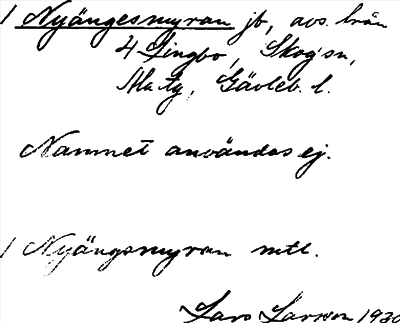 1 Nyängesmyran jb, avs. från
4 Lingbo, Skog sn,
Ala tg, Gävleb. l.
Namnet användas ej.
1 Nyängsmyran mtl.
Lars Larsson 1930